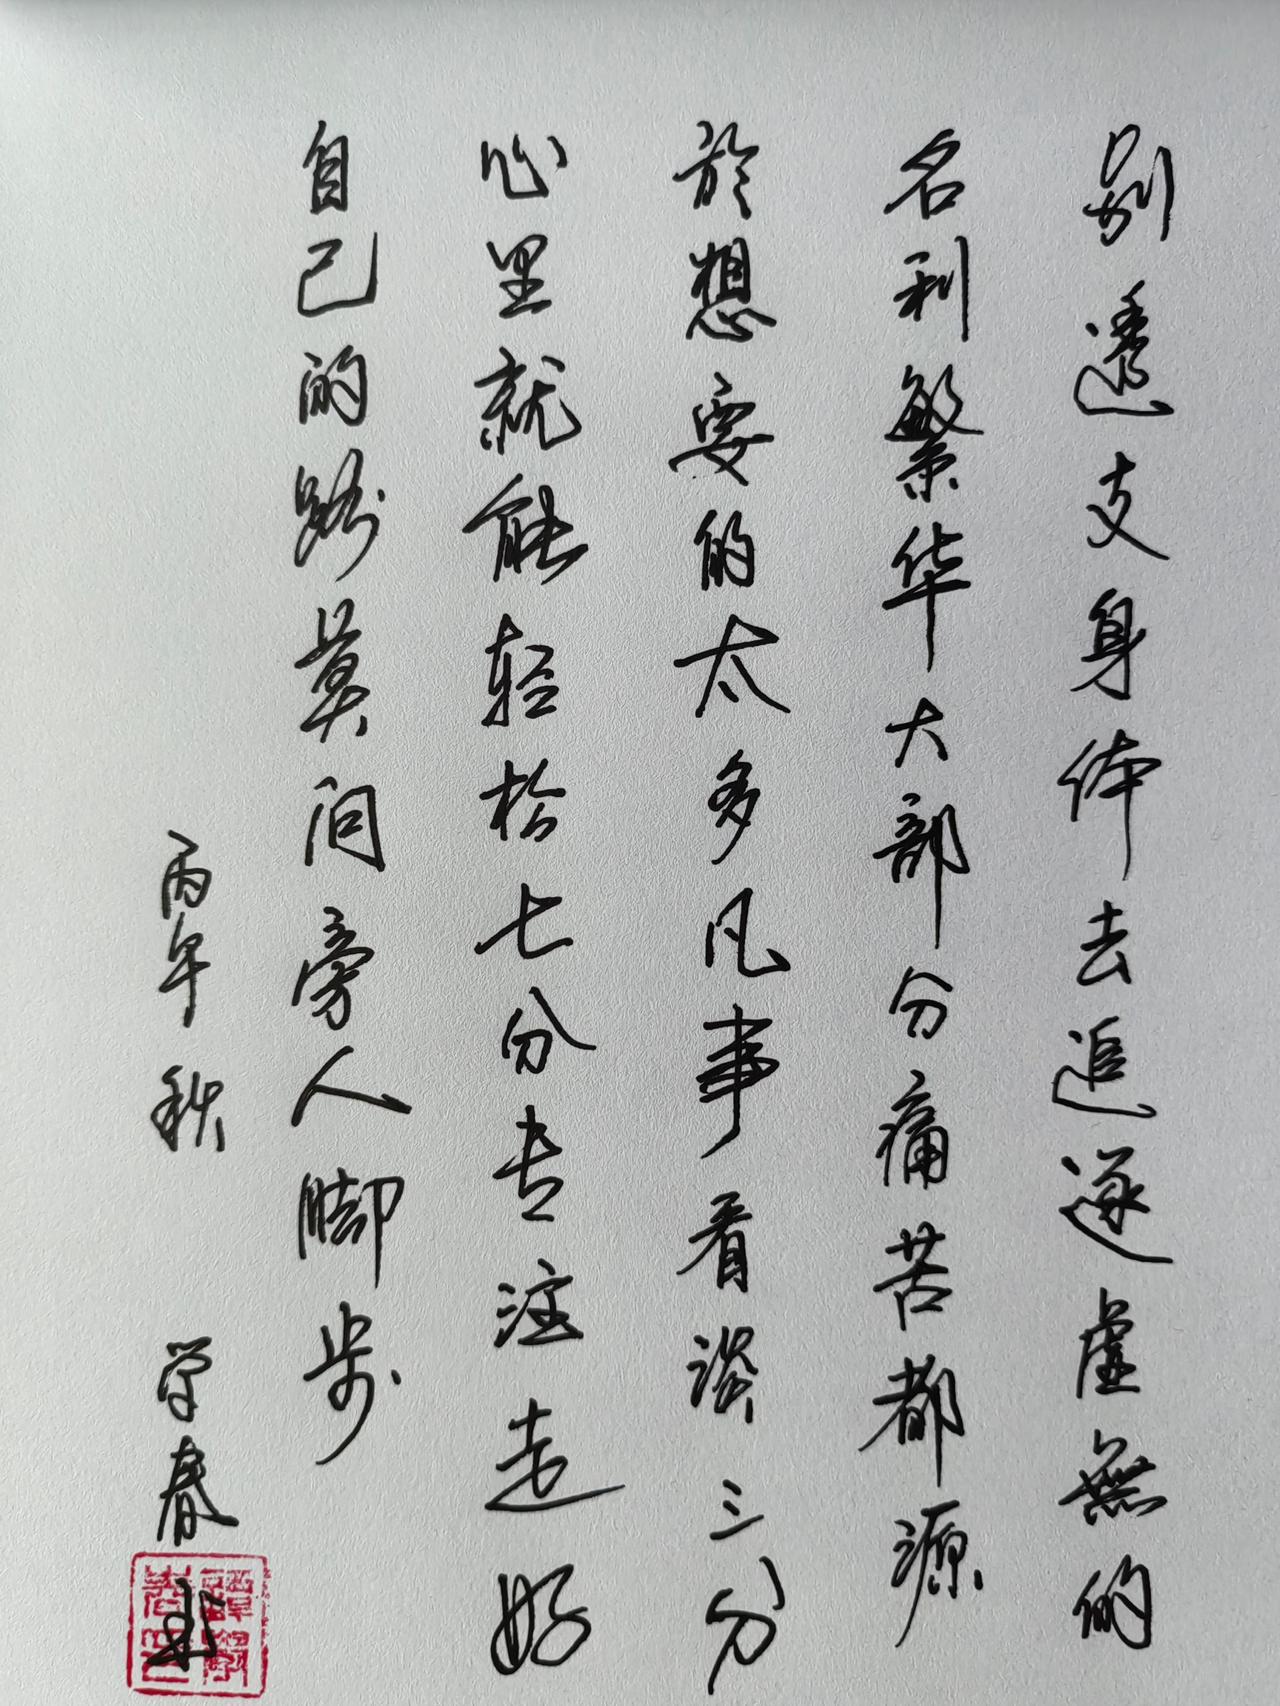 别透支身体去追逐虚無的
名利繁华大部分痛苦都源
於想要的太多凡事看淡三分
心里就能轻松七分专注走好
自己的路莫问旁人脚步
丙午秋 学春